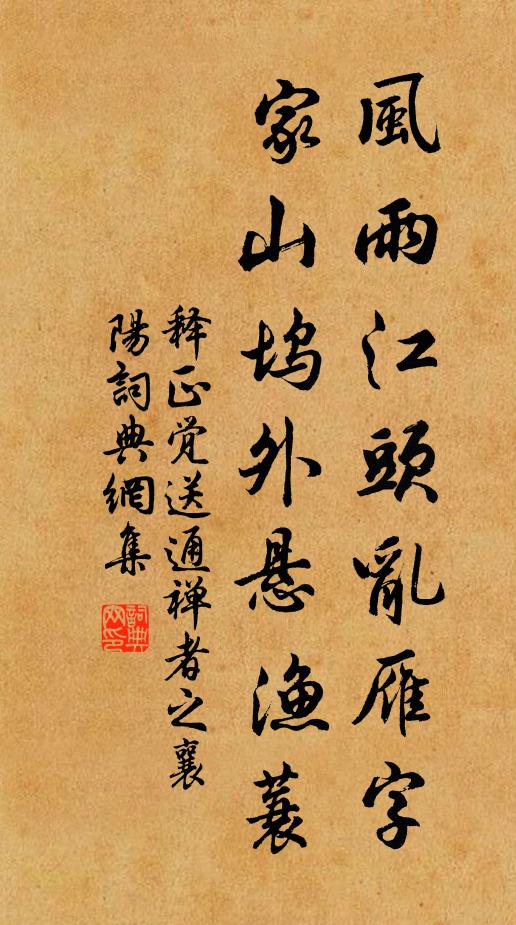 風雨江頭亂雁字
家山坞外悬漁蓑
释正觉送通禅者之襄
陽詞典網集
詞典网印